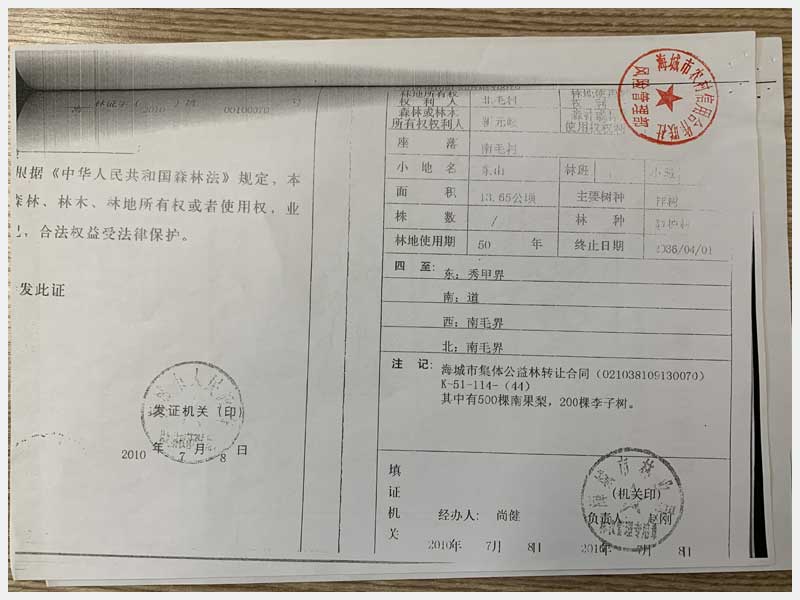 林证字(2010)第 00100070 号
根据《中华人民共和国森林法》规定，本
森林、林木、林地所有权或者使用权，业
已，合法权益受法律保护。
发此证
发证机关（印）
2010 年 7 月 8 日
海城市农村信用合作联社
风险管理部
林地所有权
权利人
北毛村
林地使用
权利
森林或林木
所有权权利人
森林或林
使用权权利
座 落
南毛村
小 地 名
东山
林班
小班
面 积
13.65公顷
主要树种
株 数
/
林 种
林地使用期
50 年
终止日期
2036/04/01
四 至：
东：秀甲界
南：道
西：南毛界
北：南毛界
注 记：
海城市集体公益林转让合同（021038109130070）
K-51-114-（44）
其中有500棵南果梨，200棵李子树。
填
证
机
关
（机关印）
经办人： 尚健
负责人： 赵刚
2010年 7月 8日
2010年 7月 8日